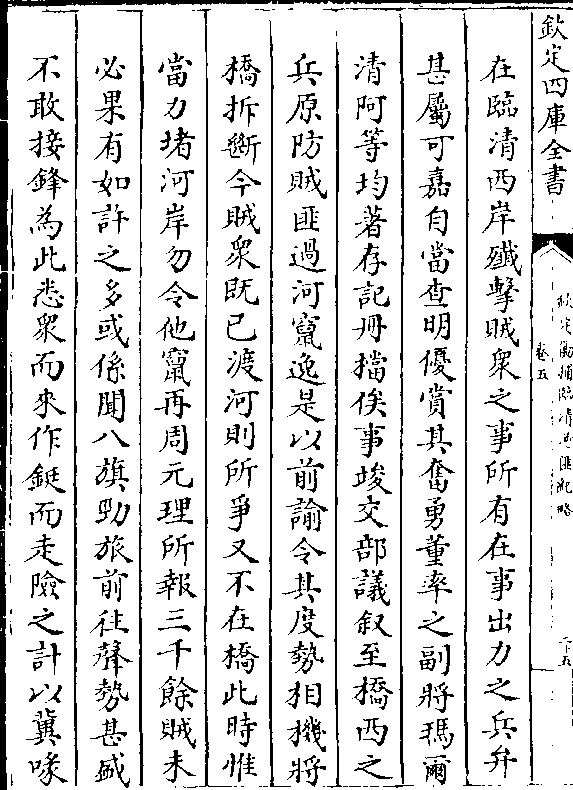 欽定四庫全書
欽定勦捕臨清逆匪紀略
卷五
在臨清西岸殲擊賊衆之事所有在事出力之兵弁
甚屬可嘉自當查明優賞其奮勇董率之副將瑪爾
清阿等均著存記册擋俟事竣交部議叙至橋西之
兵原防賊匪過河竄逸是以前諭令其度勢相機將
橋拆斷今賊衆既已渡河則所爭又不在橋此時惟
當力堵河岸勿令他竄再周元理所報三千餘賊未
必果有如許之多或係聞八旗勁旅前往聲勢甚盛
不敢接鋒為此悉衆而來作鋌而走險之計以冀喙